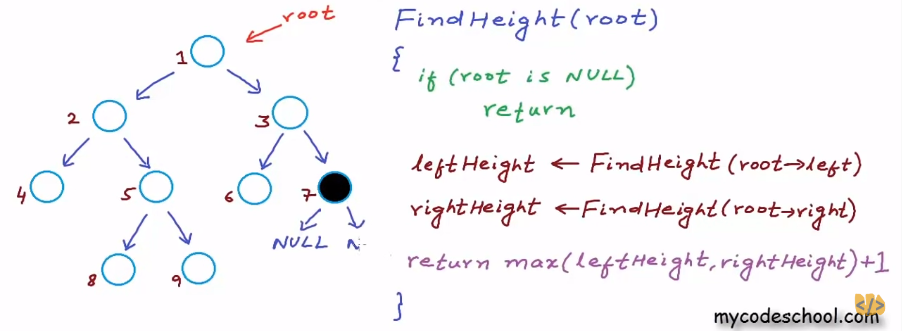 root
FindHeight(root)
1
{
if (root is NULL)
return
2
3
leftHeight ← FindHeight(root→left)
4
5
6
7
rightHeight ← FindHeight(root→right)
NULL N
return max(leftHeight, rightHeight)+1
8
9
}
</>
mycodeschool.com